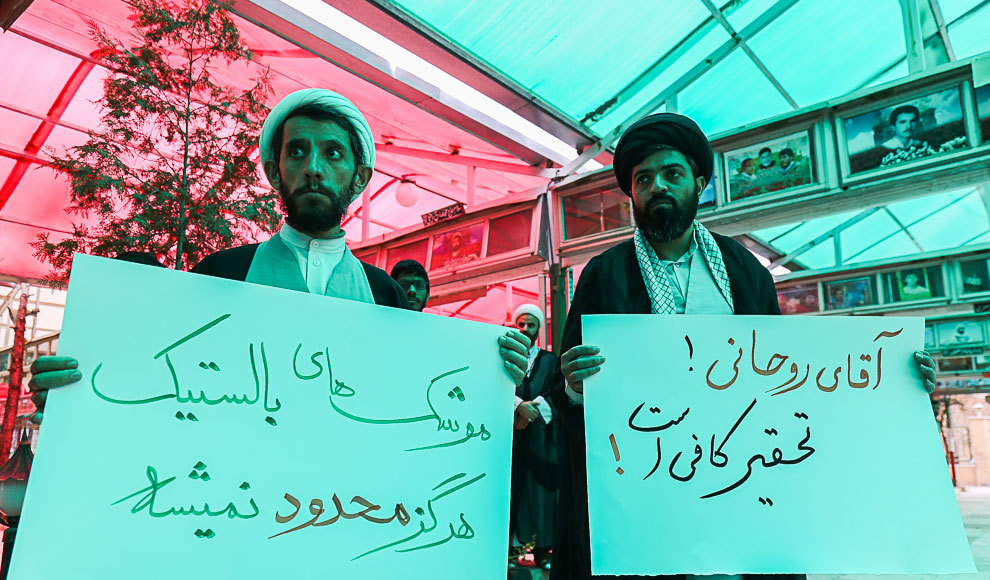 آقای روحانی!
تحقیر کافی است!
موشک های بالستیک
هرگز محدود نمیشه